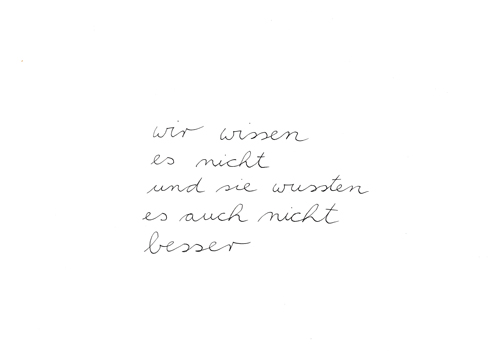 wir wissen
es nicht
und sie wussten
es auch nicht
besser